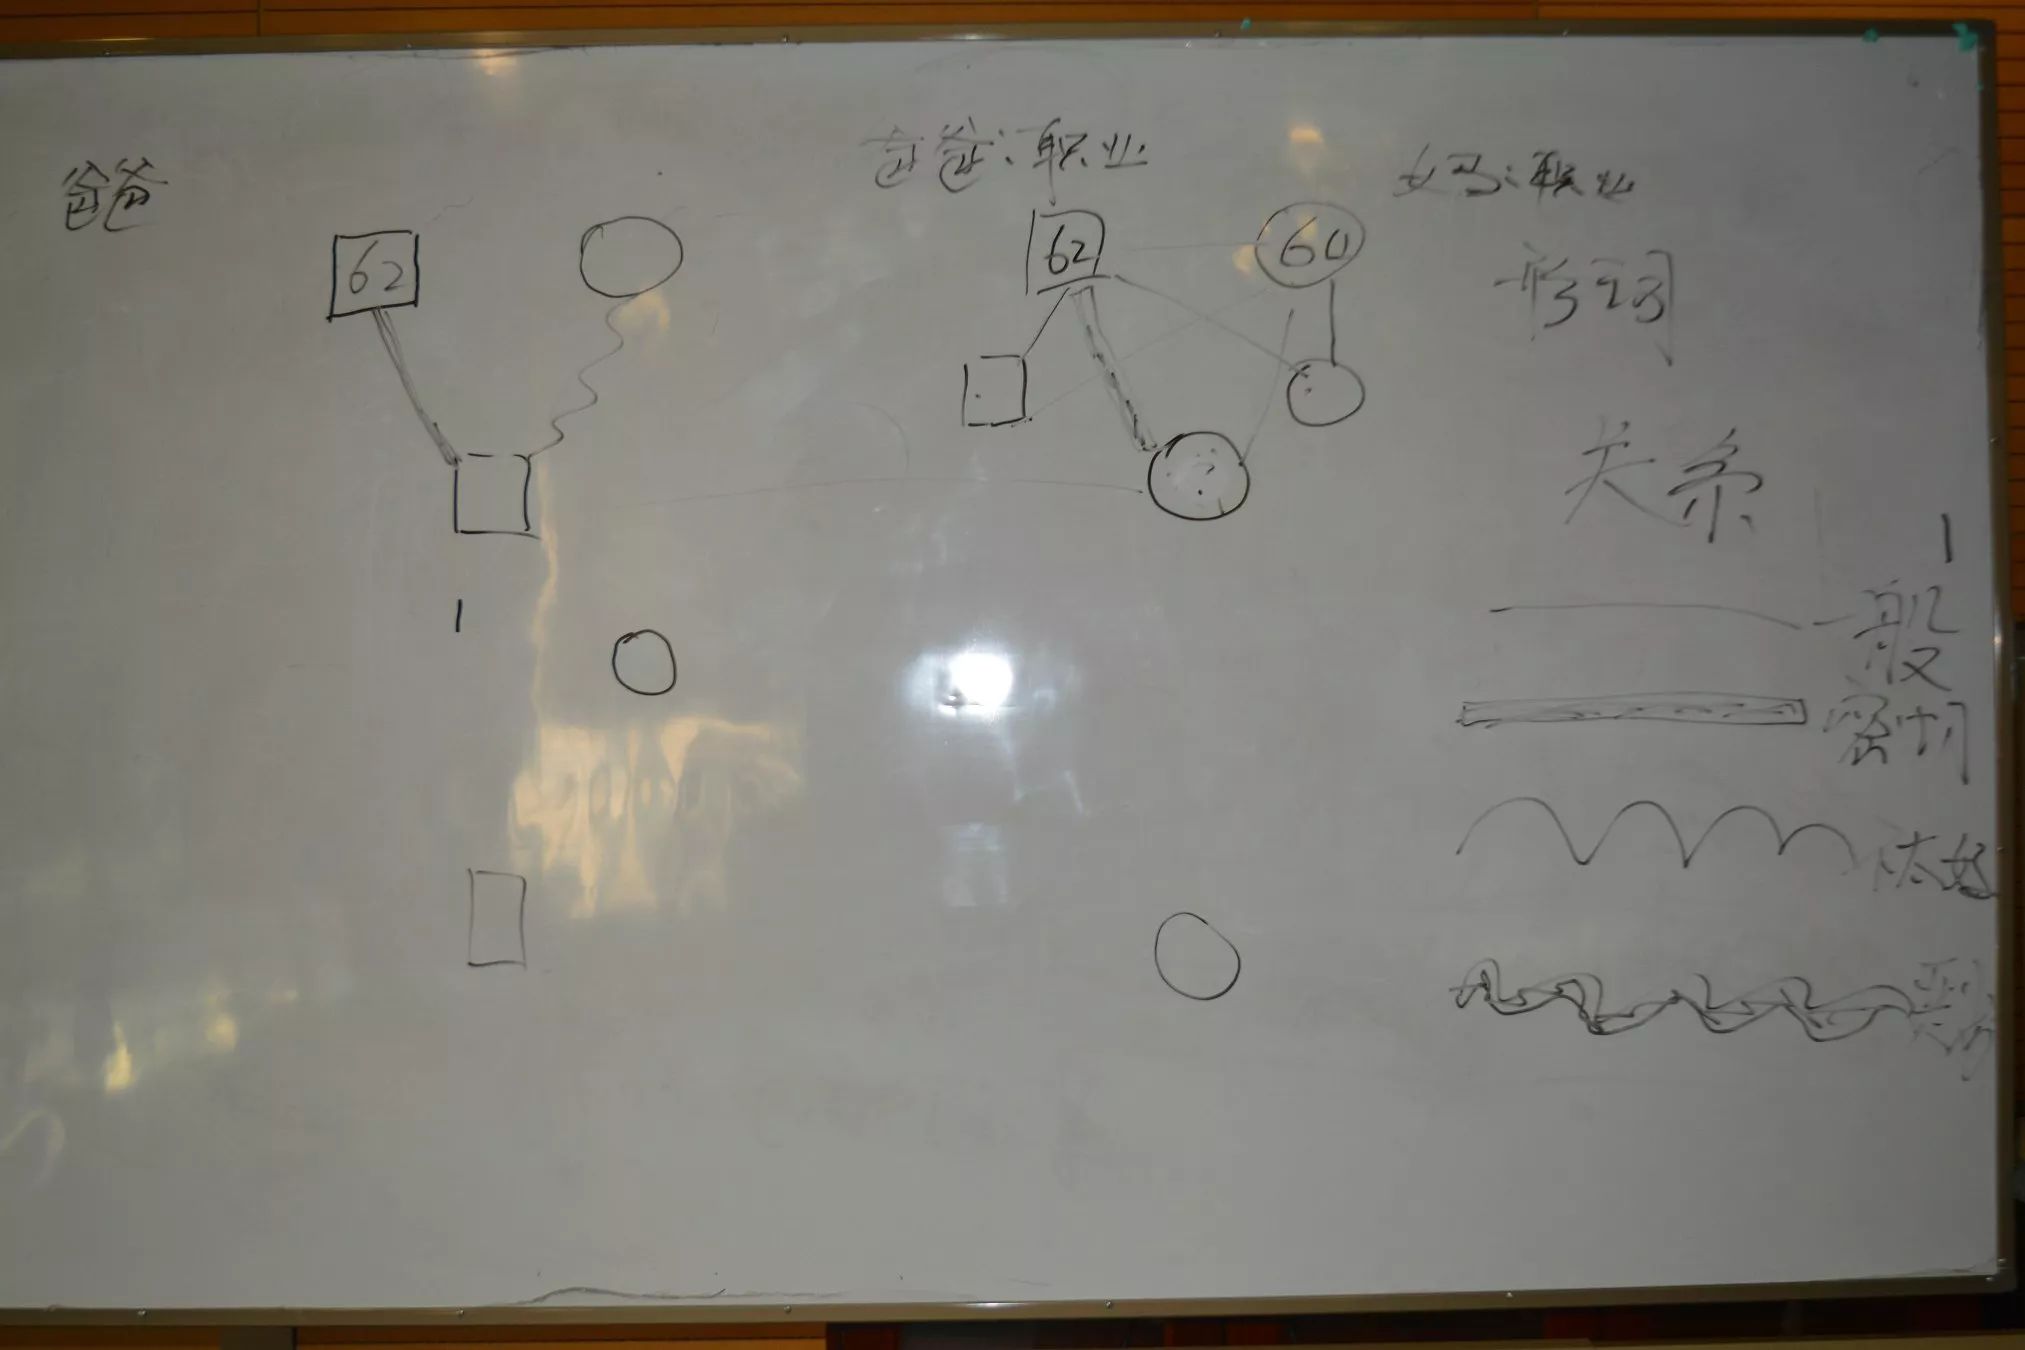 爸爸
爸爸:职业
妈妈:职业
62
62
60
形容词
关系
一般
密切
不太好